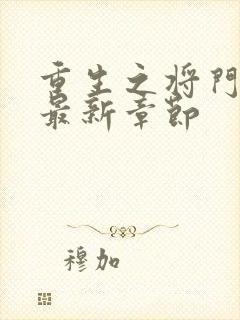 重生之将门
最新章节
穆加